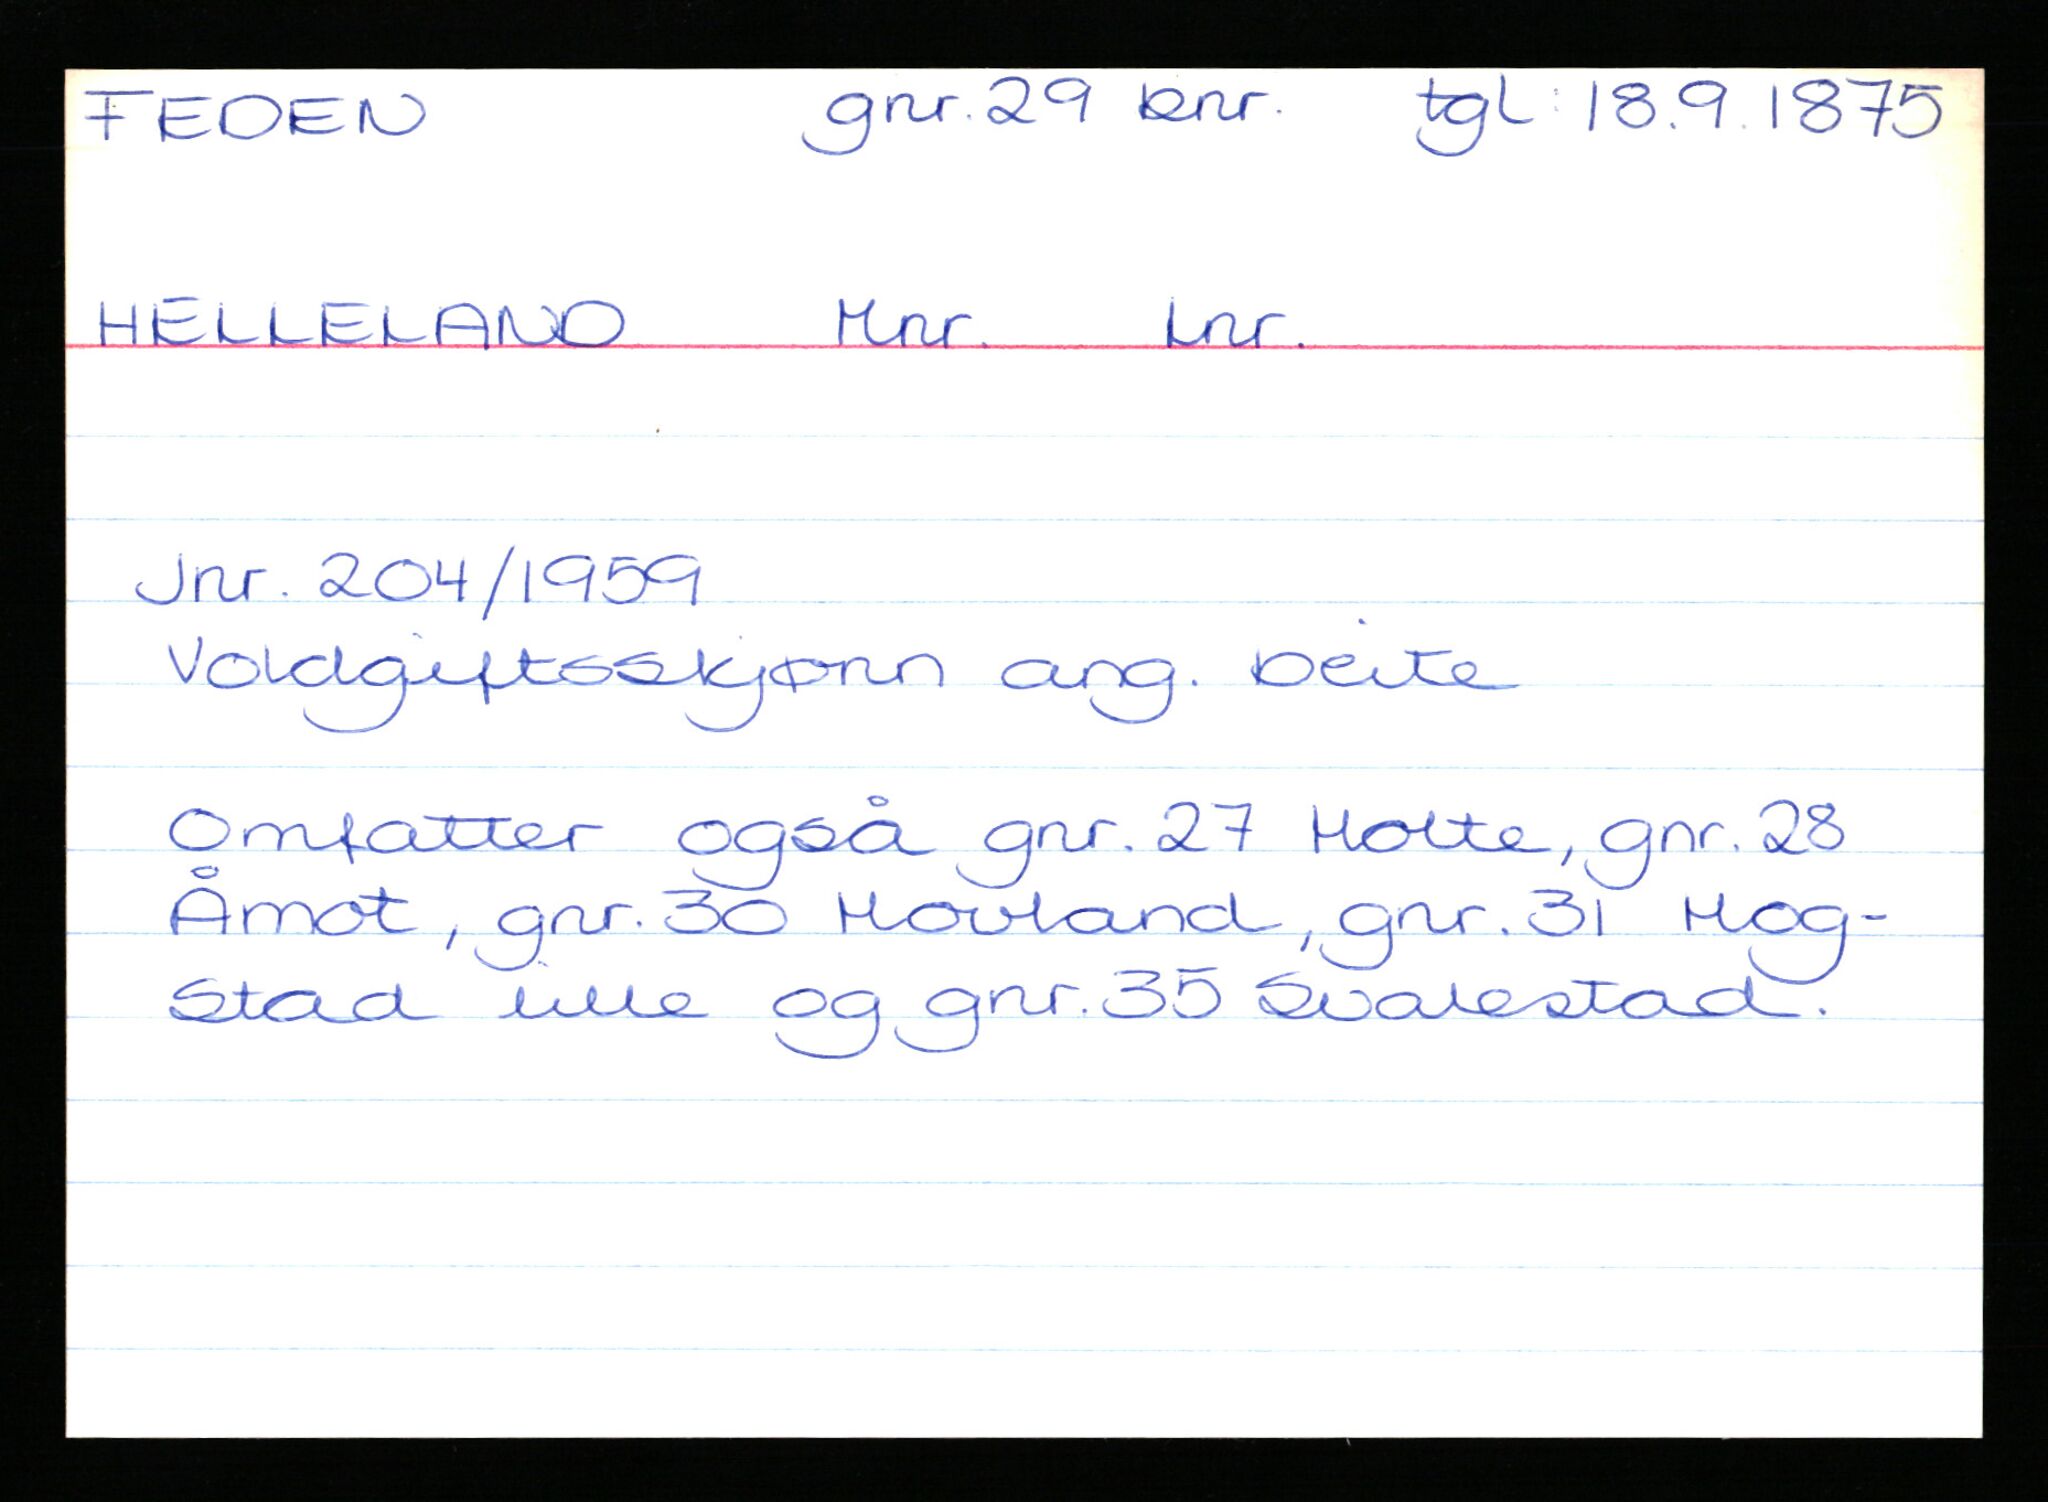 FEDEN gnr. 29 bnr. tgl: 18.9.1875
HELLELAND Mnr. Lnr.
Jnr. 204/1959
Voldgiftsskjønn ang. beite
Omfatter også gnr. 27 Holte, gnr. 28
Åmot, gnr. 30 Hovland, gnr. 31 Hog-
stad lille og gnr. 35 Svalestad.